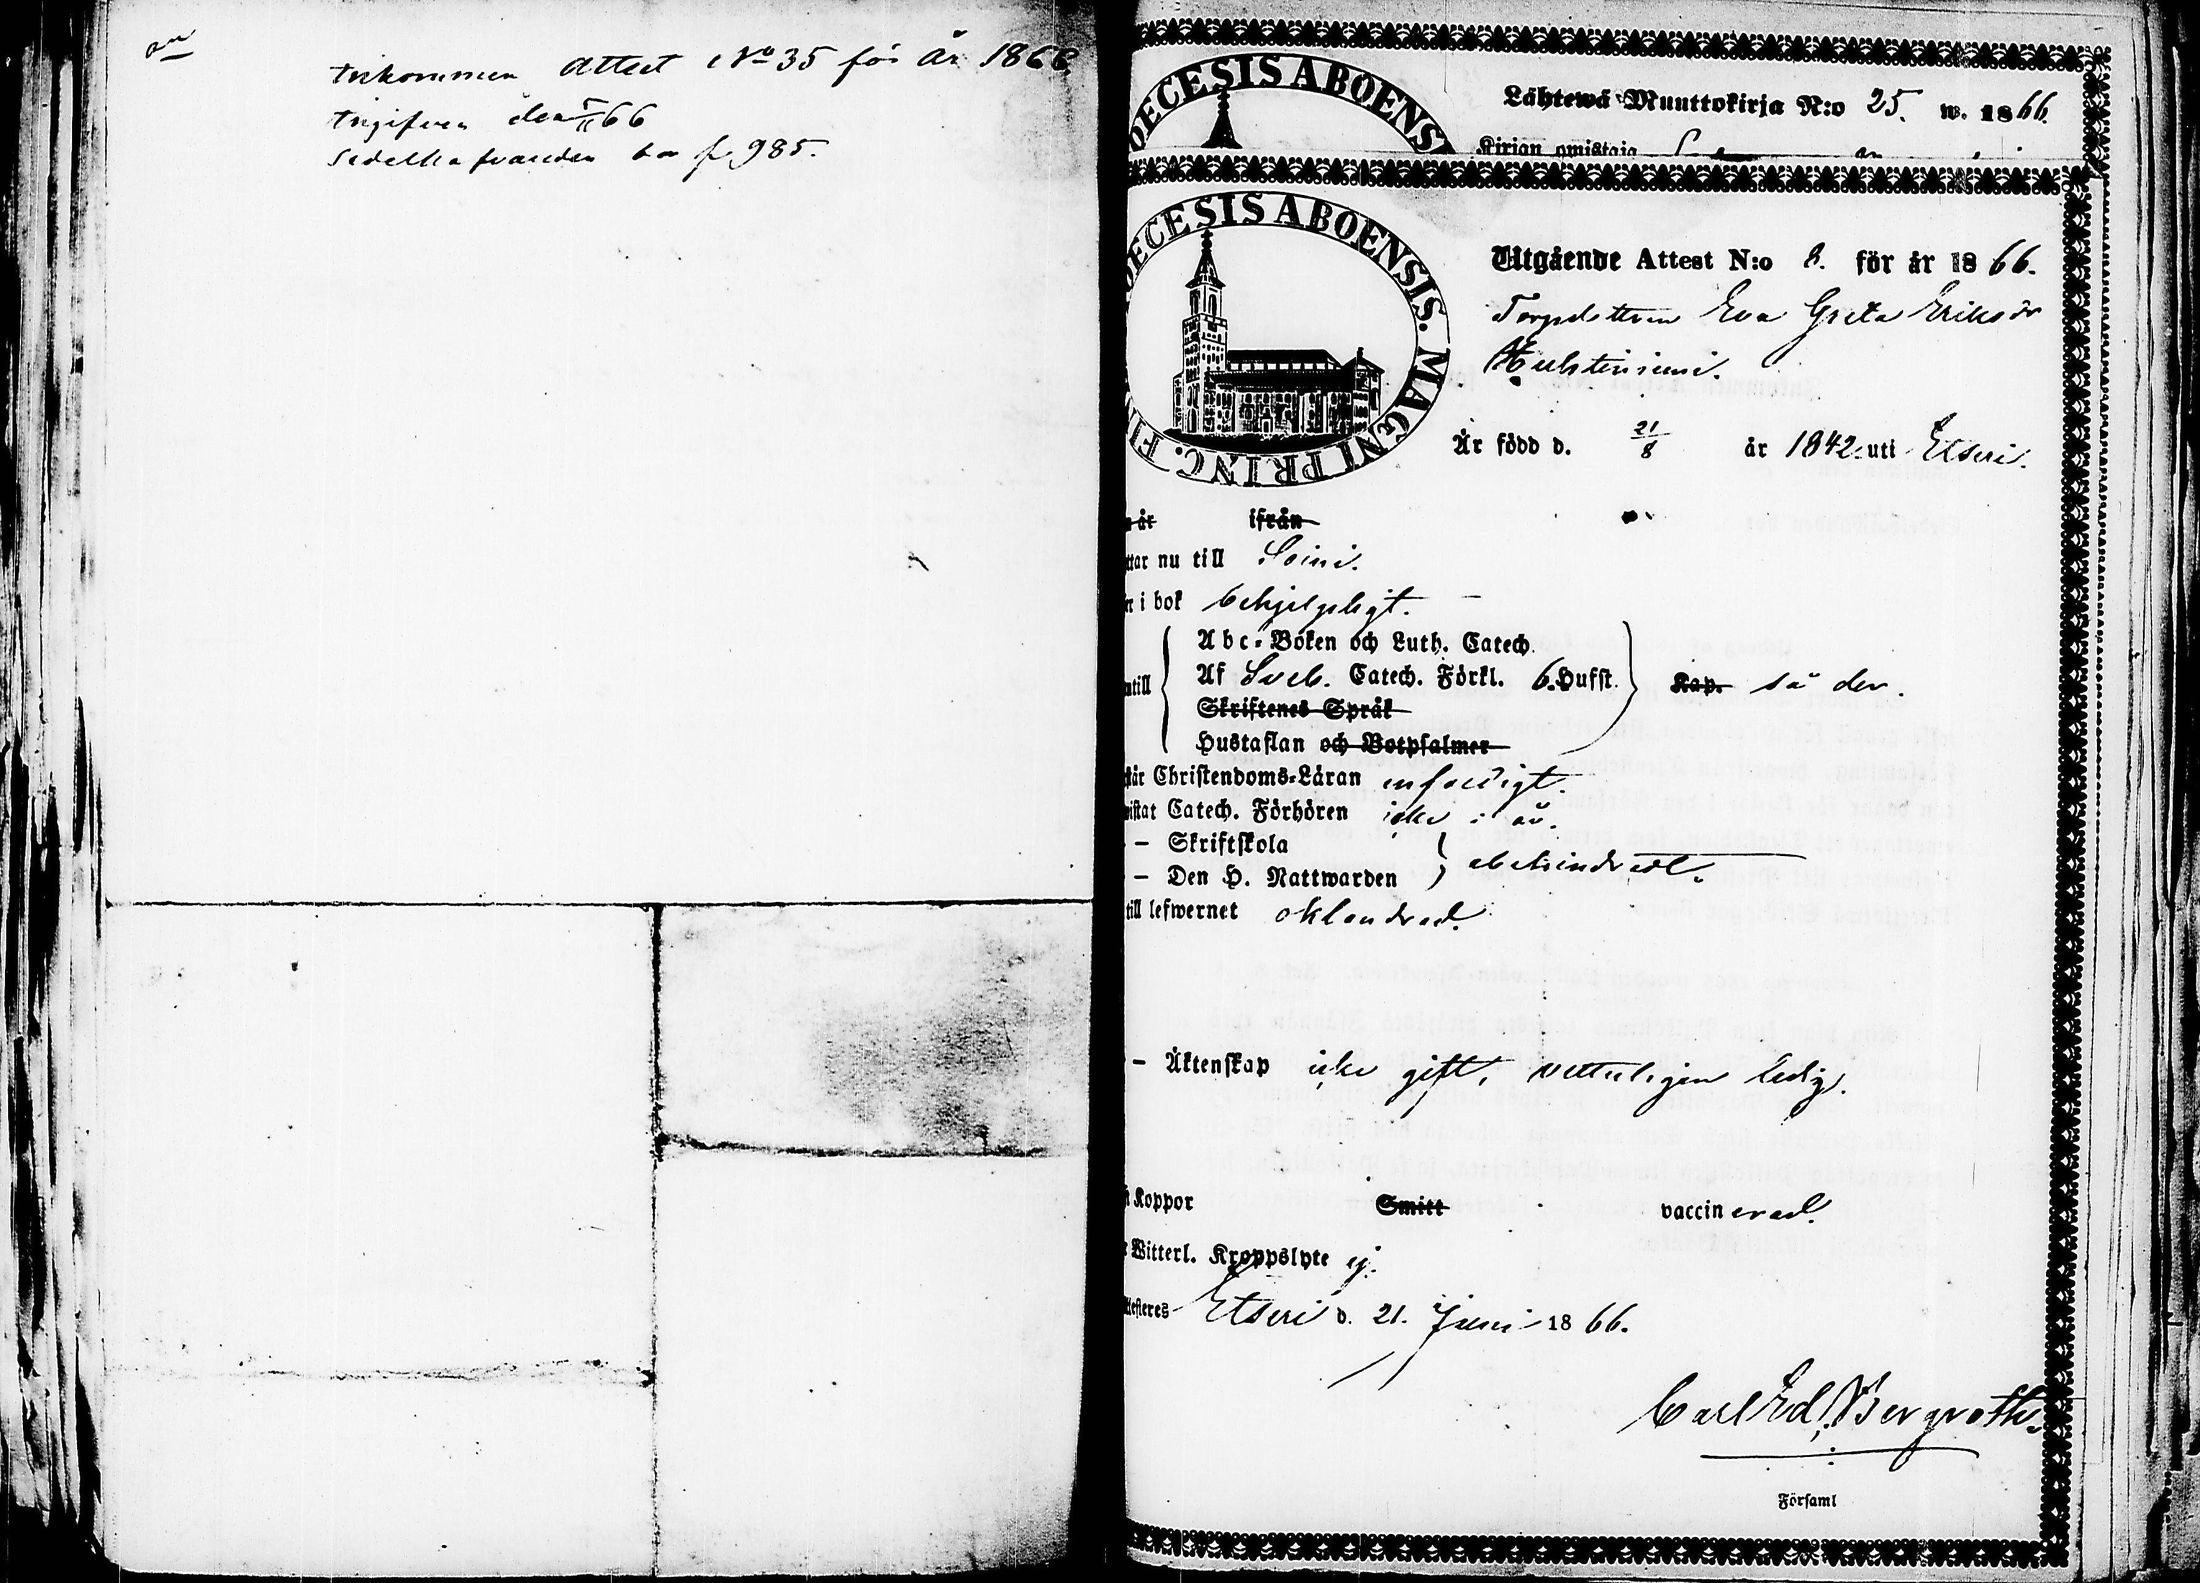 Inkommen Attest No 35 för år 1866.
Ingifven den 5/11 66
DIOECESIS ABOENSIS
Lähtewä Muuttokirja N:o 25. w. 1866.
Kirjan omistaja
DIOECESIS ABOENSIS. MAGNI PRINC. FI
Utgående Attest N:o 8. för år 1866.
Torpdottren Eva Greta Eriksdr
Är född d. 21/8 år 1842 uti Etseri.
år ifrån
ttar nu till Soini.
er i bok behjelpligt.
Abc-Boken och Luth. Catech.
Af Sveb. Catech. Förkl. 6. Hufst.
Skriftenes Språk
Hustaflan och Botpsalmer
utill
Kap. så der.
står Christendoms-Läran enfaldigt.
wistat Catech. Förhören icke i år.
– Skriftskola
– Den H. Nattwarden
obehindrad.
till lefwernet oklandrad.
– Äktenskap icke gift, vetterligen ledig.
t Koppor Smitt vaccinerad.
Witterl. Kroppslyte ej.
testeres Etseri d. 21. Juni 1866.
Carl Ed. Bergroth.
Församl